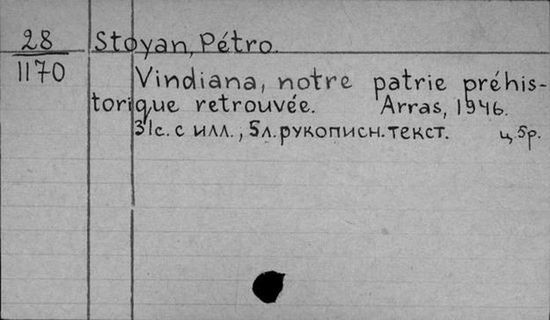 28 Stoyan, Pétro.
1170 Vindiana, notre patrie préhis-
torique retrouvée. Arras, 1946.
31с. с илл., 5л. рукописн. текст. ц. 5р.